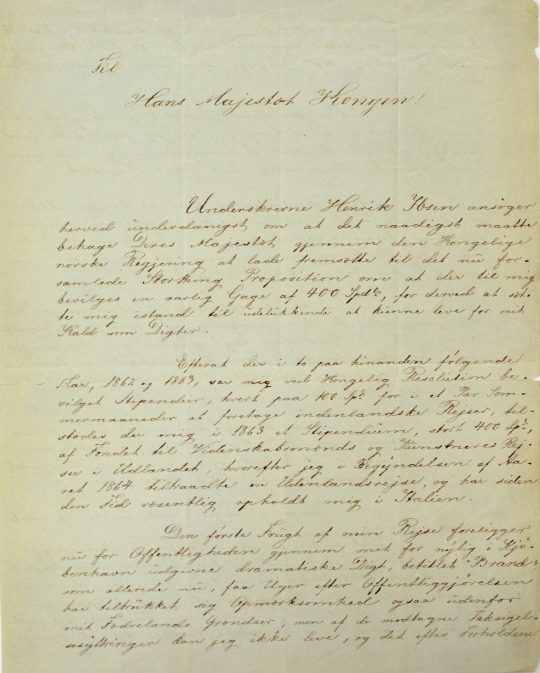 Til
Hans Majestæt Kongen!
Underskrevne Henrik Ibsen ansøger
herved underdanigst om at det naadigst maatte
behage Deres Majestæt gjennem den Kongelige
norske Regjering at lade fremsætte til det nu for-
samlede Storthing Proposition om at der til mig
bevilges en aarlig Gage af 400 Spd., for derved at sæt-
te mig istand til udelukkende at kunne leve for mit
Kald som Digter.
Efterat der i to paa hinanden følgende
Aar, 1862 og 1863, var mig ved Kongelig Resolution be-
vilget Stipendier, hvert paa 100 Spd. for i et Par Som-
mermaaneder at foretage indenlandske Rejser, til-
stodes der mig i 1863 et Stipendium, stort 400 Spd.,
af Fondet til Videnskabsmænds og Kunstneres Rej-
ser i Udlandet, hvorefter jeg i Begyndelsen af Aa-
ret 1864 tiltraadte en Udenlandsrejse, og har siden
den Tid væsentlig opholdt mig i Italien.
Den første Frugt af min Rejse foreligger
nu for Offentligheden gjennem mit for nylig i Kjø-
benhavn udgivne dramatiske Digt, betitlet "Brand",
som allerede nu, faa Uger efter Offentliggjørelsen
har tiltrukket sig Opmærksomhed ogsaa udenfor
mit Fædrelands Grændser, men af de modtagne Taksigel-
sesytringer kan jeg ikke leve, og det efter Forholdene